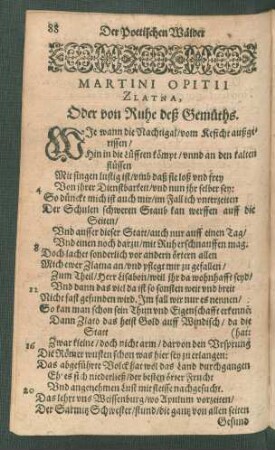 88 Der Poetischen Wälder
MARTINI OPITII
ZLATNA,
Oder von Ruhe deß Gemüths.
WJe wann die Nachtigal/vom Kefichte außge-
rissen/
Hin in die lüfften kömpt/vnnd an den kalten
flüssen
Mit singen lustig ist/vnd daß sie loß vnd frey
4 Von ihrer Dienstbarkeit/vnd nun jhr selber sey:
So dünckt mich ist auch mir/im Fall ich vnterzeiten
Der Schulen schweren Staub kan werffen auff die
Seiten/
Vnd ausser dieser Statt/auch nur auff einen Tag/
8 Vnd einen noch darzu/mit Ruh erschnauffen mag.
Doch lacher sonderlich vor andern örtern allen
Mich ewer Zlatna an/vnd pflegt mir zu gefallen/
Zum Theil/Herr Lisabon/weil jhr da wohnhafft seyd/
12 Vnd dann das viel da ist so sonsten weit vnd breit
Nicht fast gefunden wird. Jm fall wir nur es nennen/
So kan man schon sein Thun vnd Eigenschafft erkennen
Dann Zlato das heist Gold auff Windisch/ da die
Statt (hat:
16 Zwar kleine/doch nicht arm/dar von den Vrsprung
Die Römer wusten schon was hier sey zu erlangen:
Das abgeführte Volck/hat weil das Land durchgangen
Eh' es sich niederließ/der besten örter Frucht
20 Vnd angenehmen Lust mit fleisse nachgesucht.
Das lehrt vns Weissenburg/wo Apulum vorzeiten/
Der Sarmitz Schwester/stund/die gantz von allen seiten
Gesund